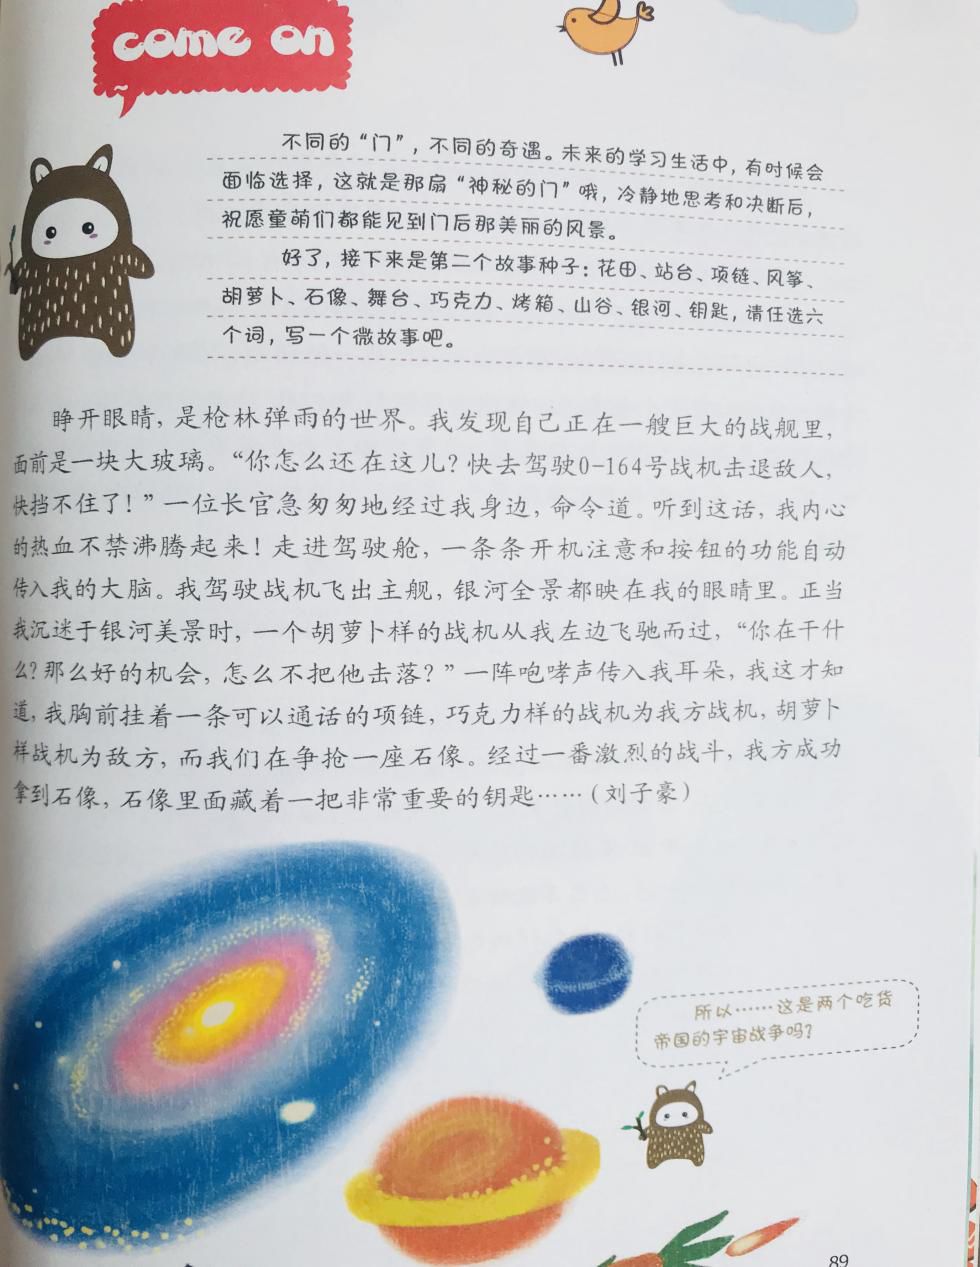 come on
不同的“门”，不同的奇遇。未来的学习生活中，有时候会
面临选择，这就是那扇“神秘的门”哦，冷静地思考和决断后，
祝愿童萌们都能见到门后那美丽的风景。
好了，接下来是第二个故事种子：花田、站台、项链、风筝、
胡萝卜、石像、舞台、巧克力、烤箱、山谷、银河、钥匙，请任选六
个词，写一个微故事吧。
睁开眼睛，是枪林弹雨的世界。我发现自己正在一艘巨大的战舰里，
面前是一块大玻璃。“你怎么还在这儿？快去驾驶0-164号战机击退敌人，
快挡不住了！”一位长官急匆匆地经过我身边，命令道。听到这话，我内心
的热血不禁沸腾起来！走进驾驶舱，一条条开机注意和按钮的功能自动
传入我的大脑。我驾驶战机飞出主舰，银河全景都映在我的眼睛里。正当
我沉迷于银河美景时，一个胡萝卜样的战机从我左边飞驰而过，“你在干什
么？那么好的机会，怎么不把他击落？”一阵咆哮声传入我耳朵，我这才知
道，我胸前挂着一条可以通话的项链，巧克力样的战机为我方战机，胡萝卜
样战机为敌方，而我们在争抢一座石像。经过一番激烈的战斗，我方成功
拿到石像，石像里面藏着一把非常重要的钥匙……（刘子豪）
所以……这是两个吃货
帝国的宇宙战争吗？
89